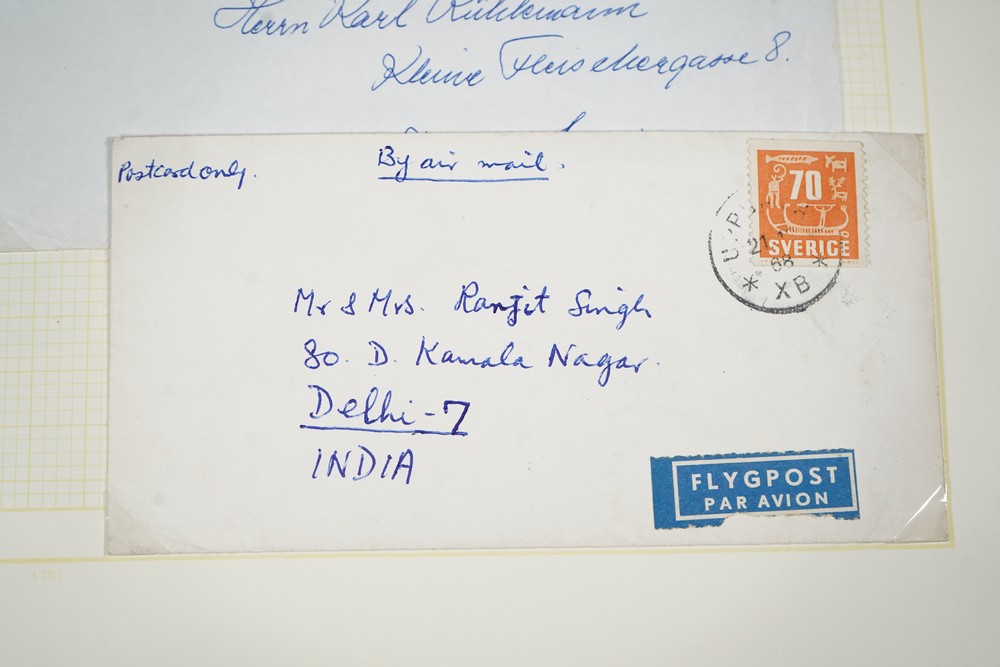 Herrn Karl Kühlemann
Kleine Fleischergasse 8.
Postcard only.
By air mail.
70
SVERIGE
21
68
* XB *
Mr & Mrs. Ranjit Singh
80. D. Kamala Nagar.
Delhi-7
INDIA
FLYGPOST
PAR AVION
(70)